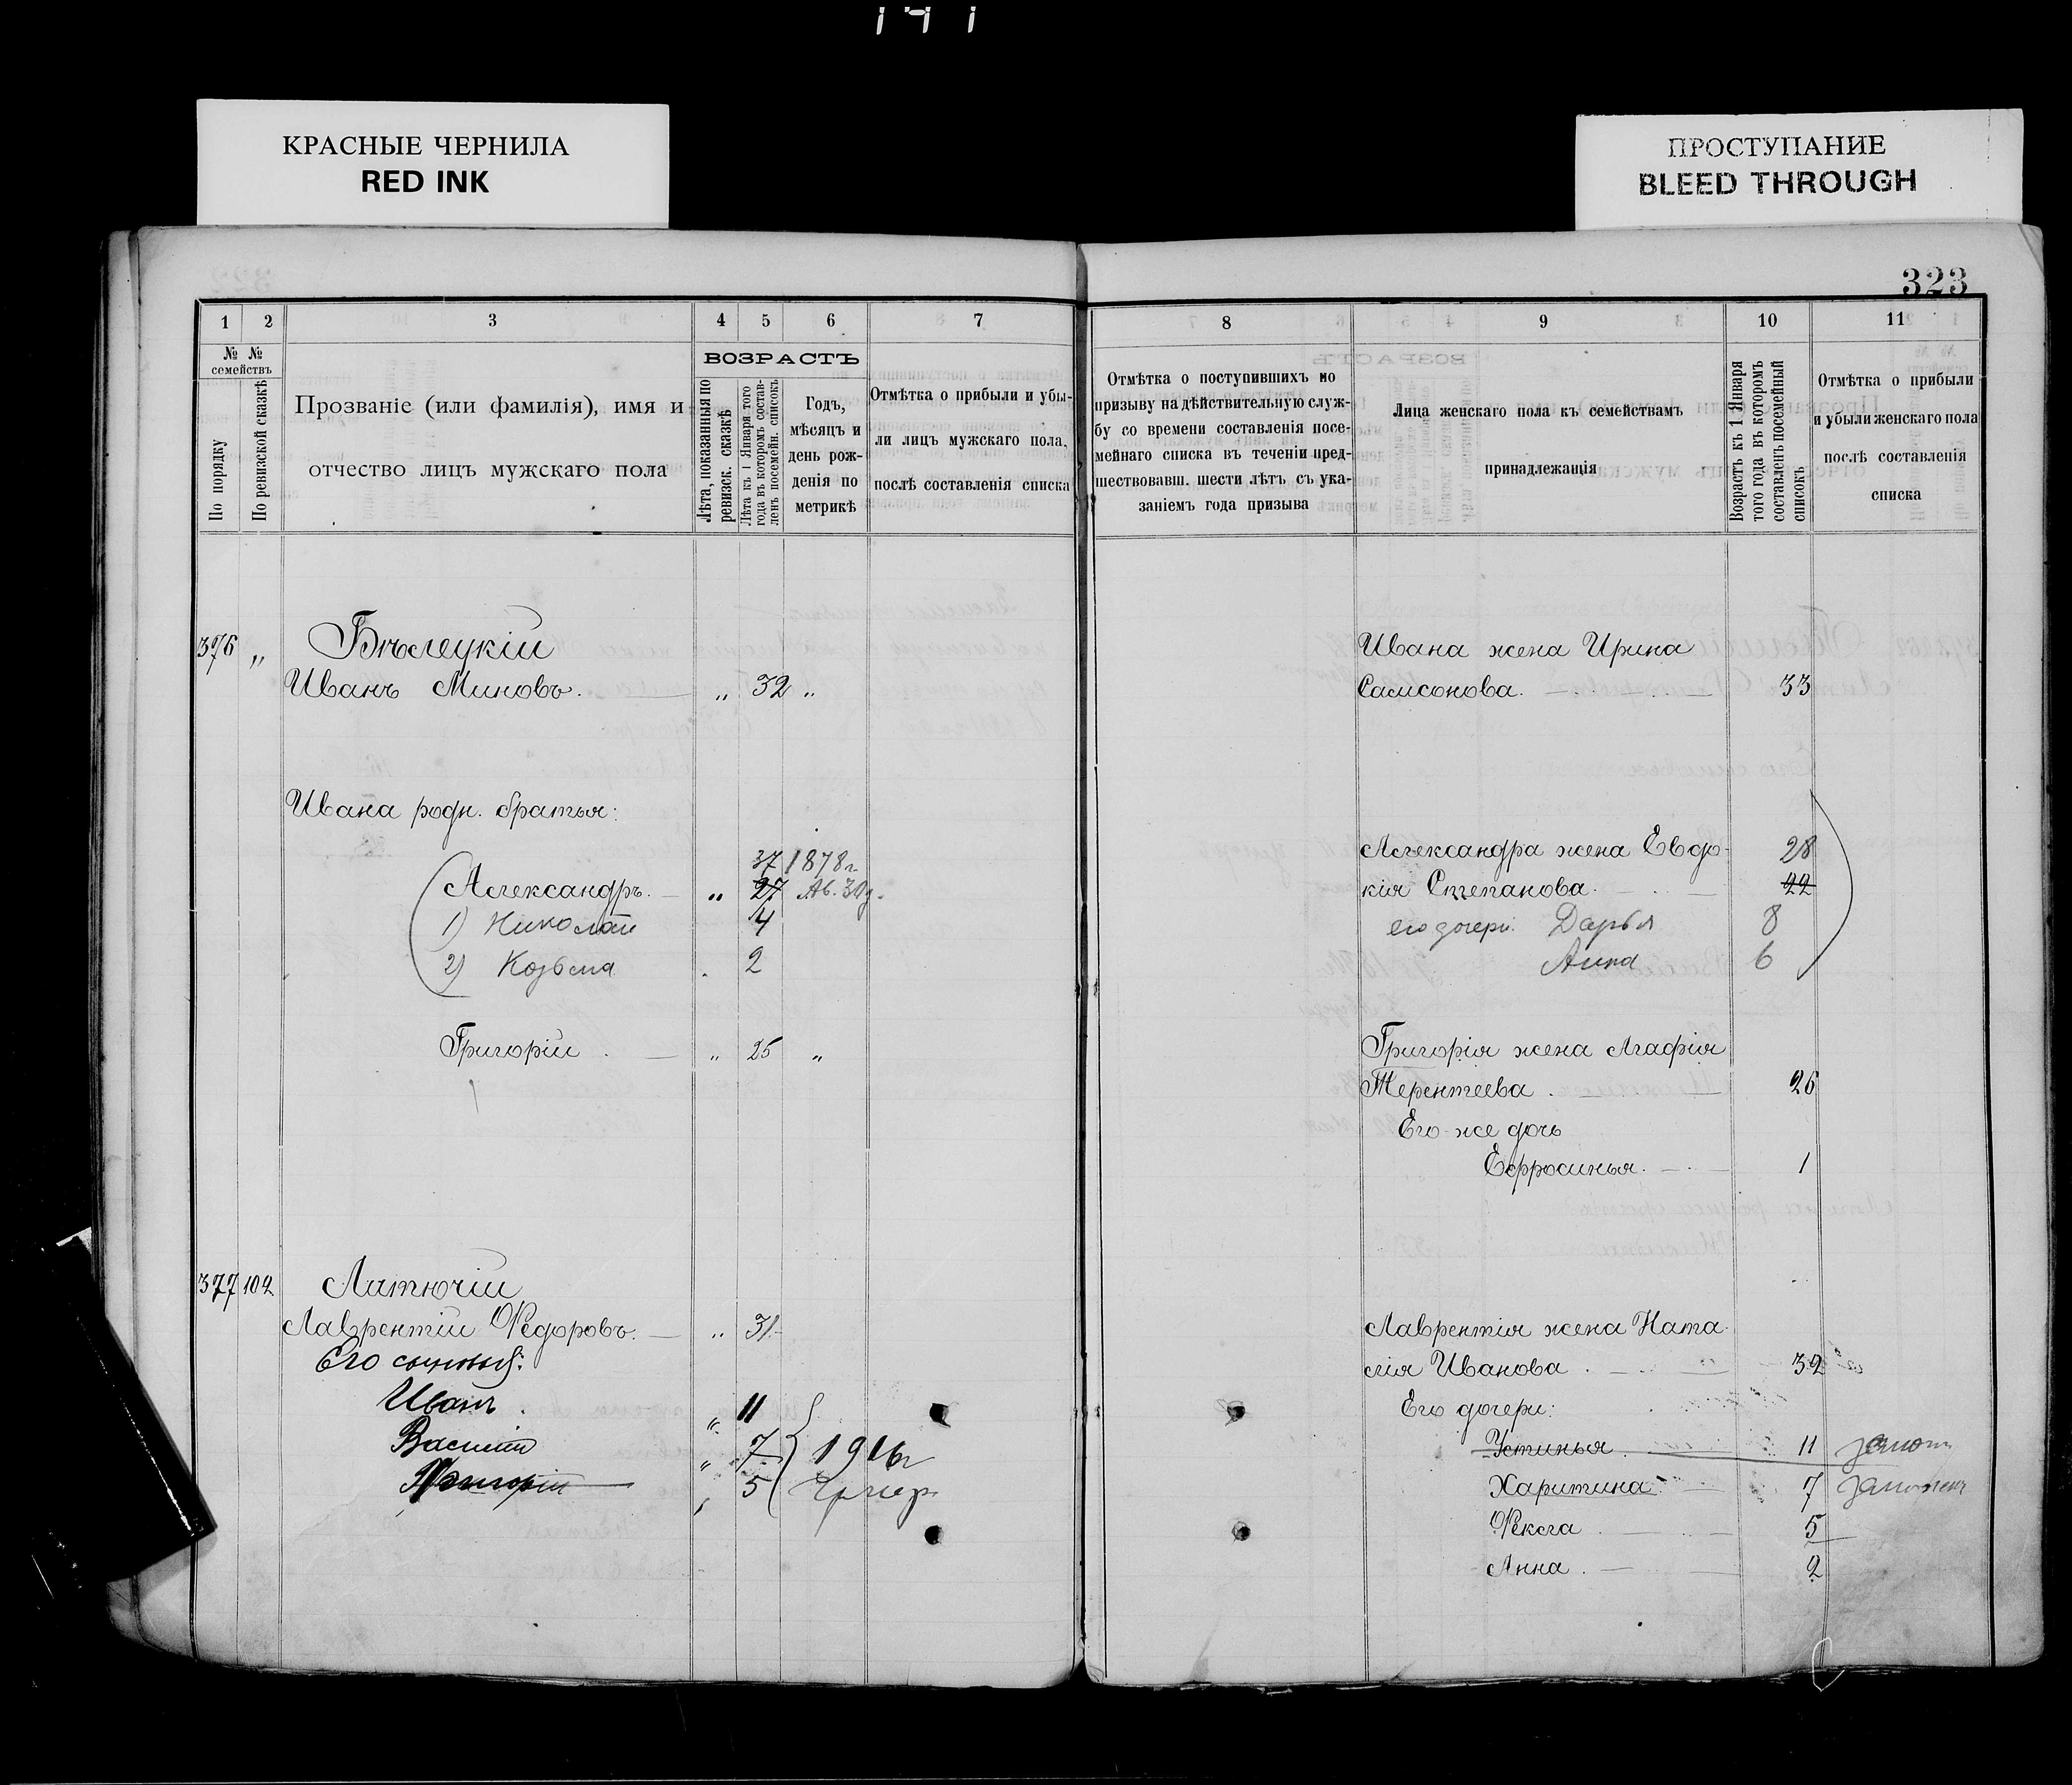 КРАСНЫЕ ЧЕРНИЛА
RED INK
ПРОСТУПАНИЕ
BLEED THROUGH
323
1 2 3 4 5 6 7
№ № семействъ
По порядку
По ревизской сказкѣ
Прозваніе (или фамилія), имя и
отчество лицъ мужскаго пола
ВОЗРАСТЪ
Лѣта, показанныя по
ревизск. сказкѣ
Лѣта къ 1 Января того
года въ которомъ состав-
ленъ посемейн. списокъ
Годъ,
мѣсяцъ и
день рож-
денія по
метрикѣ
Отмѣтка о прибыли и убы-
ли лицъ мужскаго пола,
послѣ составленія списка
376 „ Бѣлецкій
Иванъ Миновъ. „ 32 „
Ивана родн. братья:
37 1878 г.
Александръ. „ 27 Ав. 30 д.
1) Николай 4
2) Козьма 2
Григорій „ 25 „
377 102 Литючій
Лаврентій Ѳедоровъ. „ 31
Его сыновья:
Иванъ „ 11
Василій „ 7 1916 г
Григорій „ 5
8 9 10 11
Отмѣтка о поступившихъ по
призыву на дѣйствительную служ-
бу со времени составленія посе-
мейнаго списка въ теченіи пред-
шествовавш. шести лѣтъ съ ука-
заніемъ года призыва
Лица женскаго пола къ семействамъ
принадлежащія
Возрастъ къ 1 Января
того года въ которомъ
составленъ посемейный
списокъ
Отмѣтка о прибыли
и убыли женскаго пола
послѣ составленія
списка
Ивана жена Ирина
Самсонова. 33
Александра жена Евдо- 28
кія Степанова. 22
его дочери: Дарья 8
Анна 6
Григорія жена Агафія
Терентеева. 26
Его же дочь
Ефросинья. 1
Лаврентія жена Ната-
лія Иванова. 32
Его дочери:
Устинья 11
Харитина 7
Ѳекла 5
Анна 2